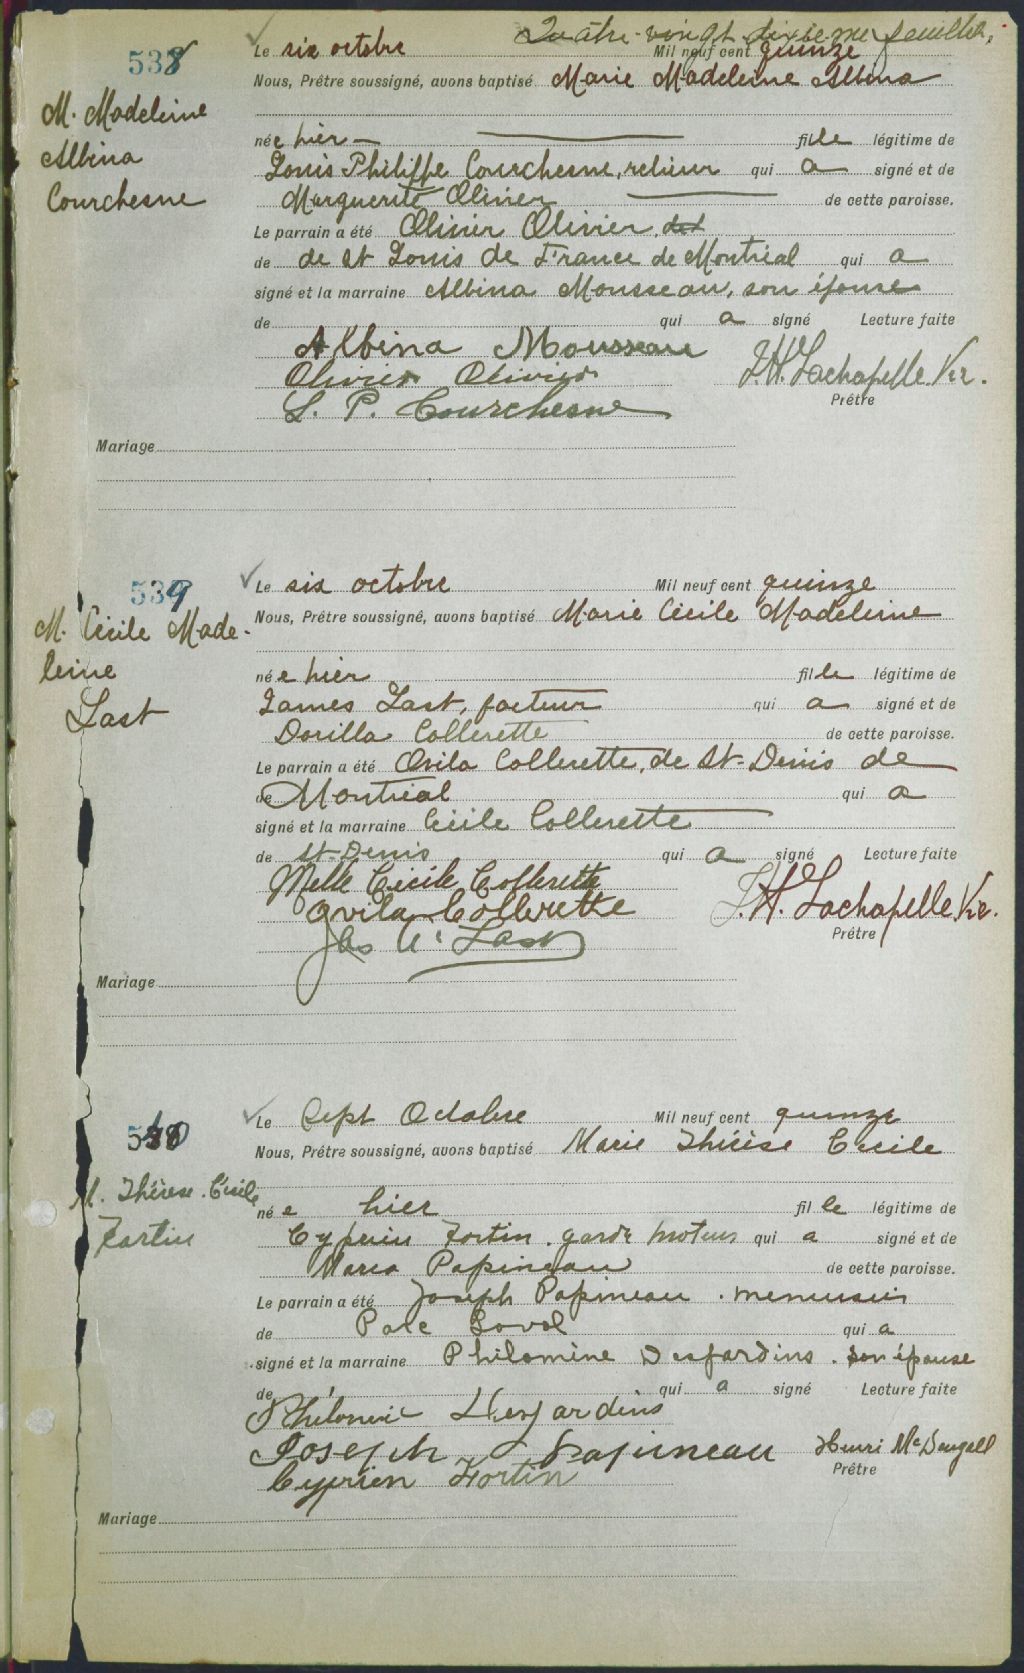 Quatre-vingt-dixième feuillet.
538
Le six octobre Mil neuf cent quinze
Nous, Prêtre soussigné, avons baptisé Marie Madeleine Albina
M. Madeleine
Albina
Courchesne
née hier — fille légitime de
Louis Philippe Courchesne, relieur qui a signé et de
Marguerite Olivier de cette paroisse.
Le parrain a été Olivier Olivier,
de de St Louis de France de Montréal qui a
signé et la marraine Albina Mousseau, son épouse
de qui a signé Lecture faite
Albina Mousseau
Olivier Olivier
L. P. Courchesne
J.H. Lachapelle Vic.
Prêtre
Mariage
539
Le six octobre Mil neuf cent quinze
Nous, Prêtre soussigné, avons baptisé Marie Cécile Madeleine
M. Cécile Made-
leine
Last
née hier fille légitime de
James Last, facteur qui a signé et de
Dorilla Collerette de cette paroisse.
Le parrain a été Ovila Collerette, de St-Denis de
de Montréal qui a
signé et la marraine Cécile Collerette
de St-Denis qui a signé Lecture faite
Melle Cécile Collerette
Ovila Collerette
Jas A. Last
J.H. Lachapelle Vic.
Prêtre
Mariage
540
Le Sept Octobre Mil neuf cent quinze
Nous, Prêtre soussigné, avons baptisé Marie Thérèse Cécile
M. Thérèse. Cécile
Fortin
née hier fille légitime de
Cyprien Fortin. garde moteur qui a signé et de
Maria Papineau de cette paroisse.
Le parrain a été Joseph Papineau. menuisier
de Parc Laval qui a
signé et la marraine Philomène Desjardins. son épouse
de qui a signé Lecture faite
Philomène Desjardins
Joseph Papineau
Cyprien Fortin
Henri McDougall
Prêtre
Mariage